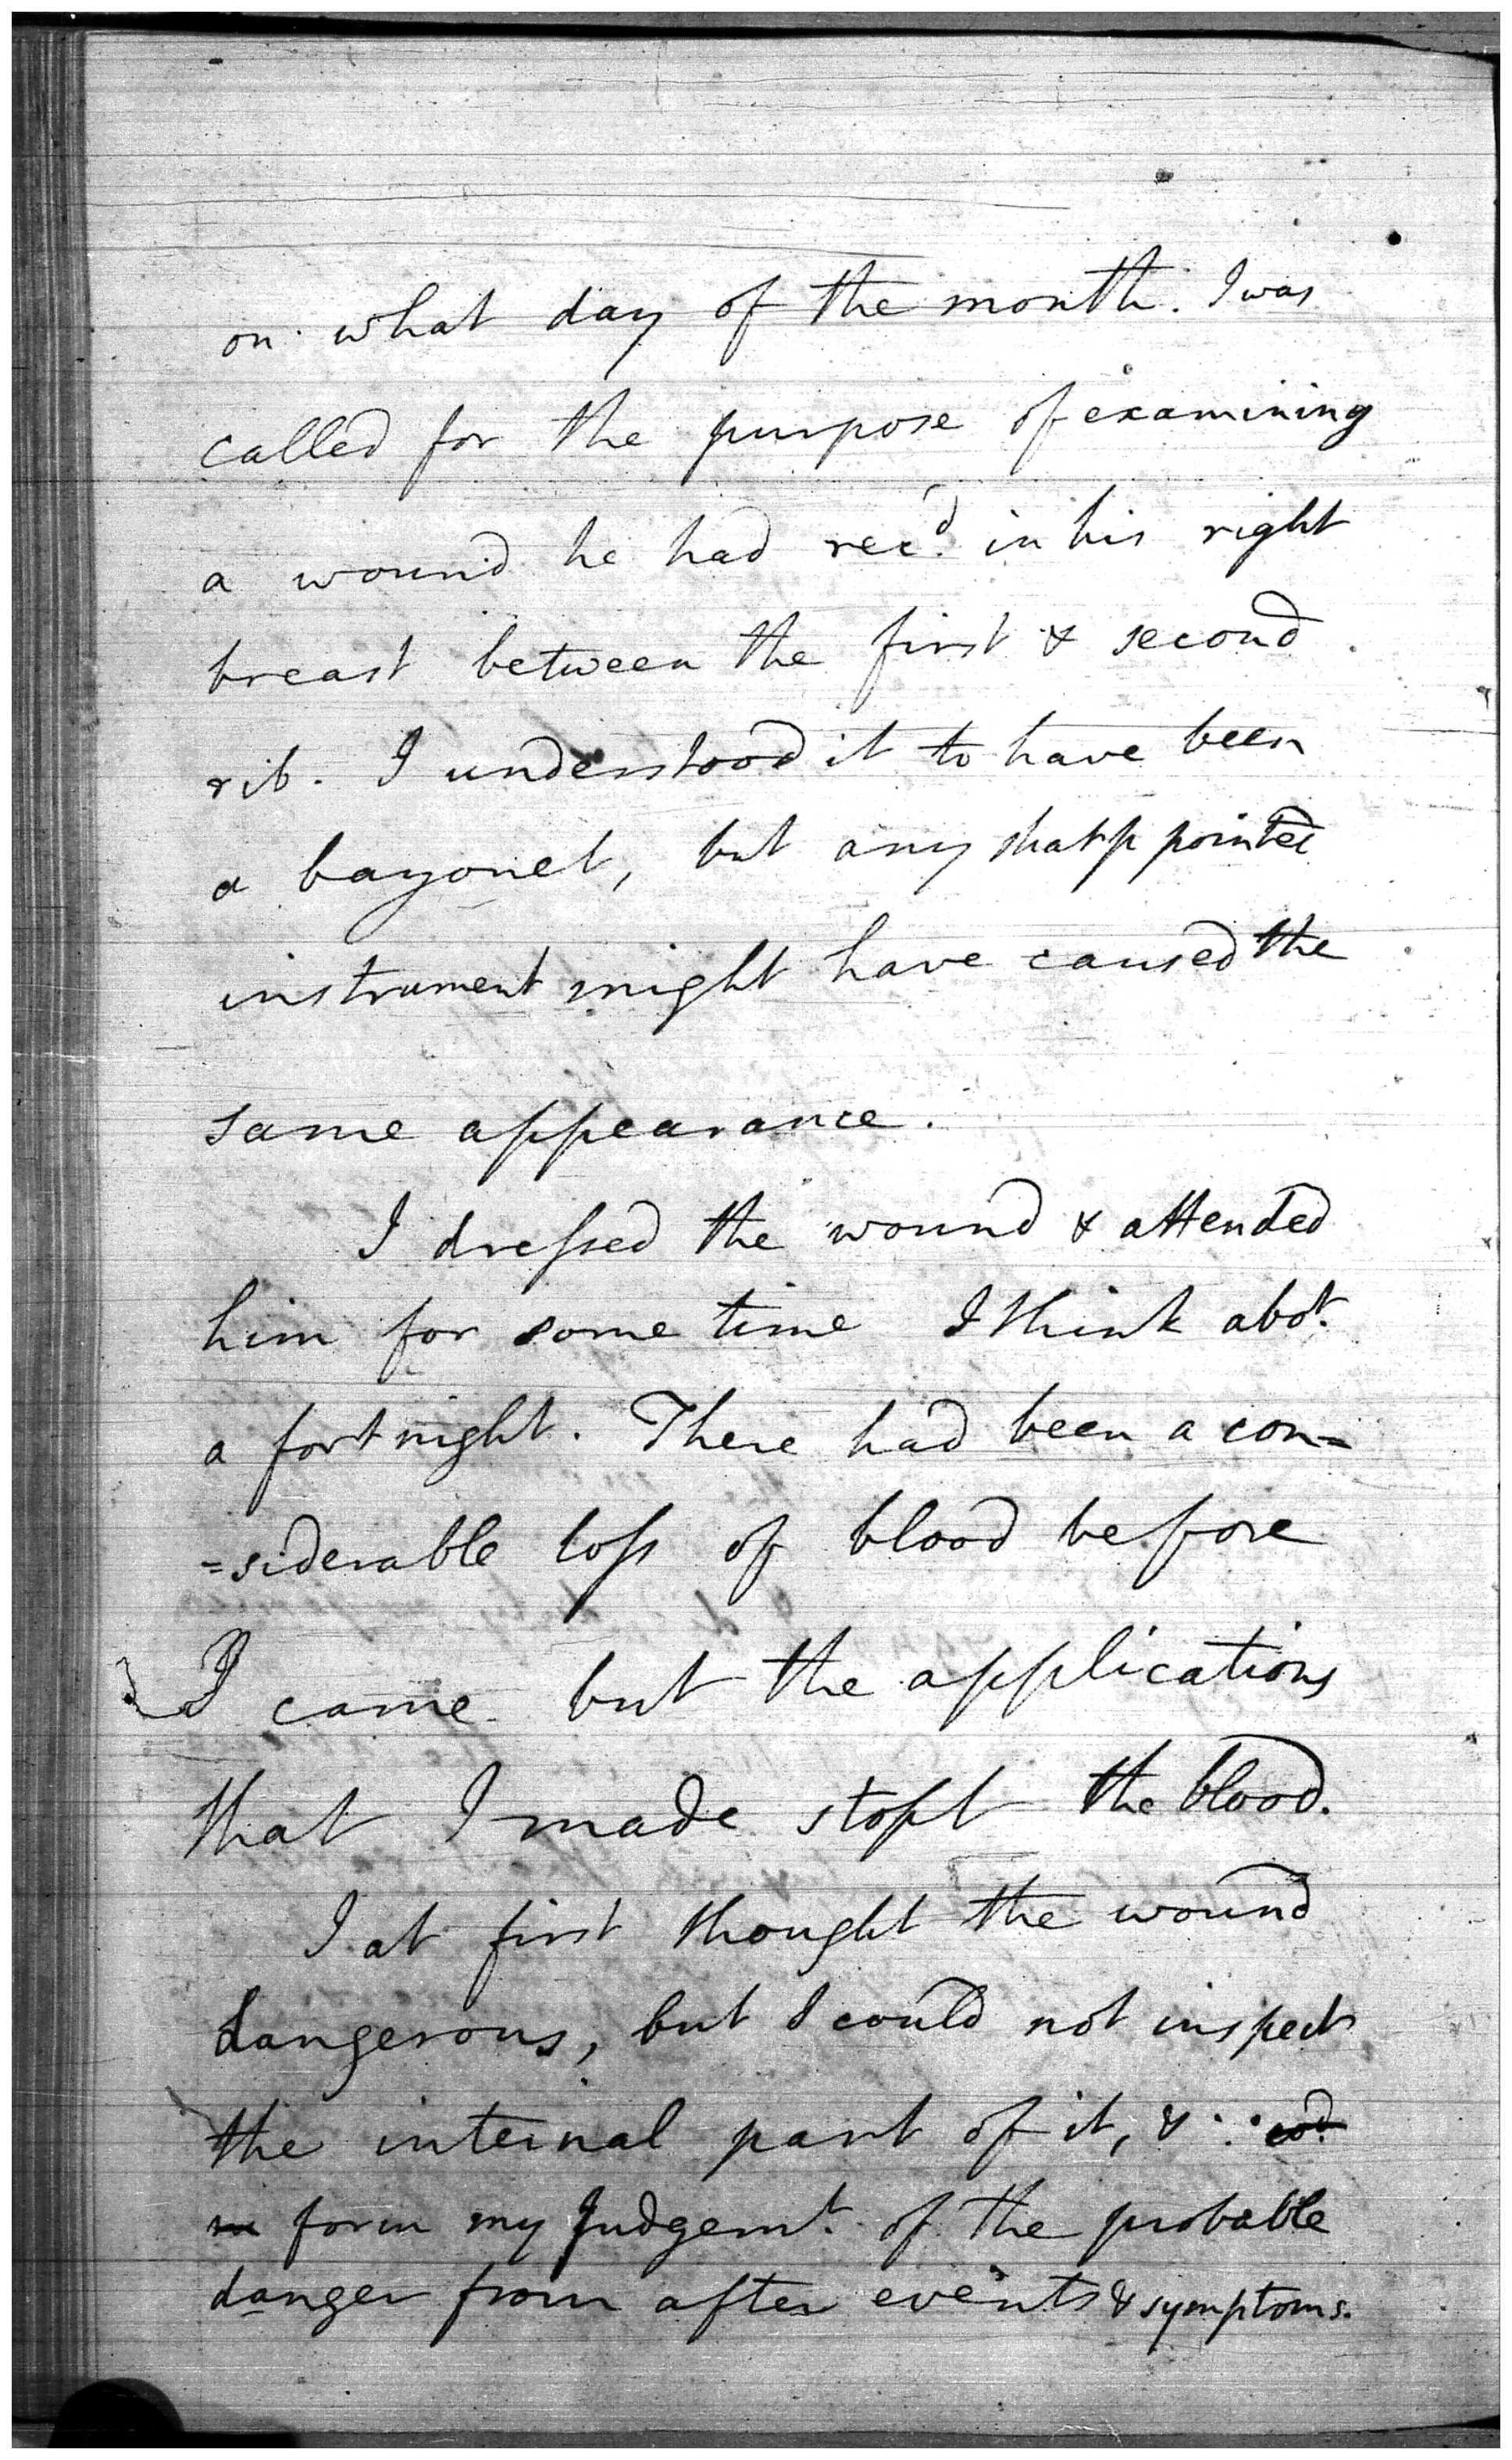 on what day of the month. I was
called for the purpose of examining
a wound he had rec'd. in his right
breast between the first & second
rib. I understood it to have been
a bayonet, but any sharp pointed
instrument might have caused the
same appearance.
I dressed the wound & attended
him for some time I think abot.
a fortnight. There had been a con=
=siderable loss of blood before
I came but the applications
that I made stopt the blood.
I at first thought the wound
dangerous, but I could not inspect
the internal part of it, & cod.
form my Judgemt. of the probable
danger from after events & symptoms.